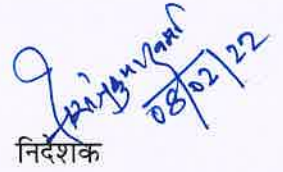 08/02/22
निदेशक